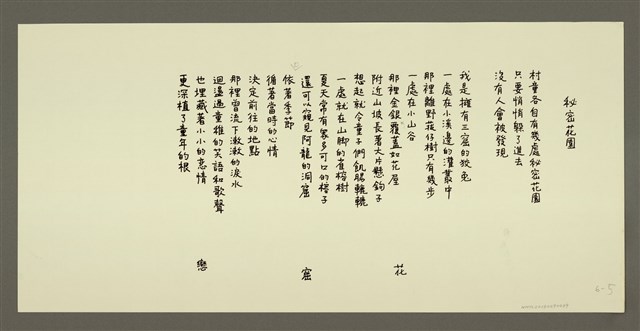 秘密花園
村童各自有幾處秘密花園
只要悄悄躲了進去
沒有人會被發現
我是擁有三窟的狡兔
一處在小溪邊的灌叢中
那裡離野菝仔樹只有幾步
一處在小山谷
那裡金銀覆蓋如花屋
附近山坡長著大片懸鉤子
想起就令童子們飢腸轆轆
一處就在山腳的雀榕樹
夏天常有眾多可口的榕子
還可以窺見阿龍的洞窟
依著季節
循著當時的心情
決定前往的地點
那裡曾流下激激的淚水
迴盪過童稚的笑語和歌聲
也埋藏著小小的悲情
更深植了童年的根
花
窟
戀
6-5